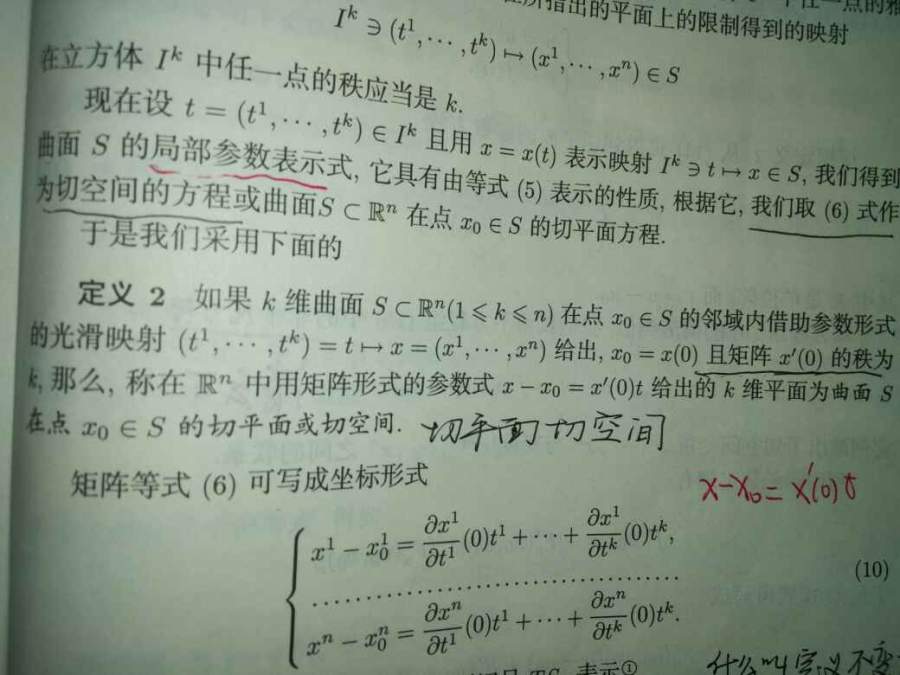 所指出的平面上的限制得到的映射
I^k ∋ (t^1, ⋯, t^k) ↦ (x^1, ⋯, x^n) ∈ S
在立方体 I^k 中任一点的秩应当是 k.
现在设 t = (t^1, ⋯, t^k) ∈ I^k 且用 x = x(t) 表示映射 I^k ∋ t ↦ x ∈ S, 我们得到
曲面 S 的局部参数表示式, 它具有由等式 (5) 表示的性质, 根据它, 我们取 (6) 式作
为切空间的方程或曲面S ⊂ ℝ^n 在点 x_0 ∈ S 的切平面方程.
于是我们采用下面的
定义 2 如果 k 维曲面 S ⊂ ℝ^n(1 ⩽ k ⩽ n) 在点 x_0 ∈ S 的邻域内借助参数形式
的光滑映射 (t^1, ⋯, t^k) = t ↦ x = (x^1, ⋯, x^n) 给出, x_0 = x(0) 且矩阵 x′(0) 的秩为
k, 那么, 称在 ℝ^n 中用矩阵形式的参数式 x − x_0 = x′(0)t 给出的 k 维平面为曲面 S
在点 x_0 ∈ S 的切平面或切空间. 切平面 切空间
矩阵等式 (6) 可写成坐标形式
x-x_0 = x′(0) t
x^1 − x_0^1 = ∂x^1/∂t^1 (0)t^1 + ⋯ + ∂x^1/∂t^k (0)t^k,
⋯⋯⋯⋯⋯⋯⋯⋯⋯⋯⋯⋯ (10)
x^n − x_0^n = ∂x^n/∂t^1 (0)t^1 + ⋯ + ∂x^n/∂t^k (0)t^k.
表示①
什么叫定义不变